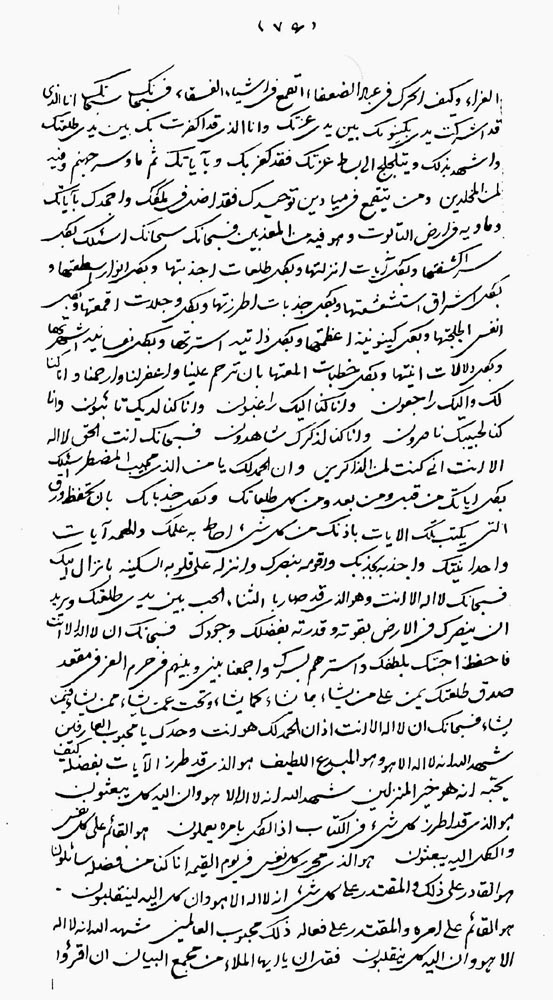 (٧٦)
العزاء وكيف الحرك فی عباد الضعفاء اتقمع فی اشياء الفسقاء فسبحانك سبحانك انا الذی
قد اشركت بين يدی عزتك وانا الذی قد اكفرت بك بين يدی طلعتك
واشهد بذلك ويتلجلج الی بساط عزتك فقد كفر بك وبآياتك ثم ماويه جهنم وفيه
لمن المخلدين ومن يتقمع فی ميادين توحيدك فقد اضل فی ملكك واجحدك بآياتك
وماويه فی ارض التابوت وهو فيه من المعذبين فسبحانك سبحانك اسئلك بكل
سر اكشفتها وبكل آيات انزلتها وبكل طلعات اجذبتها وبكل انوار اسطعتها و
بكل اشراق استشعشعتها وبكل جذبات اطرزتها وبكل وجلات اقمعتها وبكل
انفس الجلجتها وبكل كينونية اعظمتها وبكل ذاتيه استرتها وبكل نفسانيه اشهرتها
وبكل دلالات انيتها وبكل خطبات المعتها بان ترحم علينا واغفر لنا وارحمنا وانا كنا
لك واليك راجعون وانا كنا اليك راغبون وانا كنا لديك تائبون وانا
كنا لحبيبك ناصرون وانا كنا لذكرك شاهدون فسبحانك انت الحق لا اله
الا انت انی كنت لمن الذاكرين وان الحمد لك يا من الذی مجيب المضطر اسئلك
بكل اياتك من قبل ومن بعد ومن كل طلعاتك وبكل جذباتك بان تحفظ ورق
التی يكتب تلك الايات باذنك من كل شیء احاط به علمك والهمه آيات
وحدانيتك واجذبه بجذبك واقومه بنصرك وانزله علی قلوبه السكينه بانزال اليك
فسبحانك لا اله الا انت وهو الذی قد صار بالثناء الحب بين يدی طلعتك ويريد
ان ينصرك فی الارض بقوته وقدرته بفضلك وجودك فسبحانك ان لا اله الا انت
فاحفظ احبتك بلطفك واسترهم بسرك واجمعنا بينی وبينهم فی حرم العز فی مقعد
صدق طلعتك يمن علی من يشاء بما يشاء كما يشاء وتحت عمن يشاء ممن يشاء فيما
يشاء فسبحانك ان لا اله الا انت اذ ان الحمد لك هو انت وحدك يا محبوب العارفين
شهد الله انه لا اله الا هو وهو المبدع اللطيف هو الذی قد طرز الآيات بفضله كيف
يحبه انه هو خير المنزلين شهد الله انه لا اله الا هو وان اليه كل يبعثون
هو الذی قد اطرز كل شیء فی الكتاب اذا لكل بامره يعملون هو القائم علی كل نفس
والكل اليه يبعثون هو الذی مجری كل نفس فی يوم القيمه انا كنا من فضله سائلون
هو القادر علی ذلك والمقتدر علی كل شیء انه لا اله الا هو وان كل اليه لينقلبون
هو القائم علی امره والمقتدر علی فعاله ذلك محبوب العالمين شهد الله انه لا اله
الا هو وان اليه كل ينقلبون فقل ان يا ايها الملاء من مجمع البيان ان اقرؤا